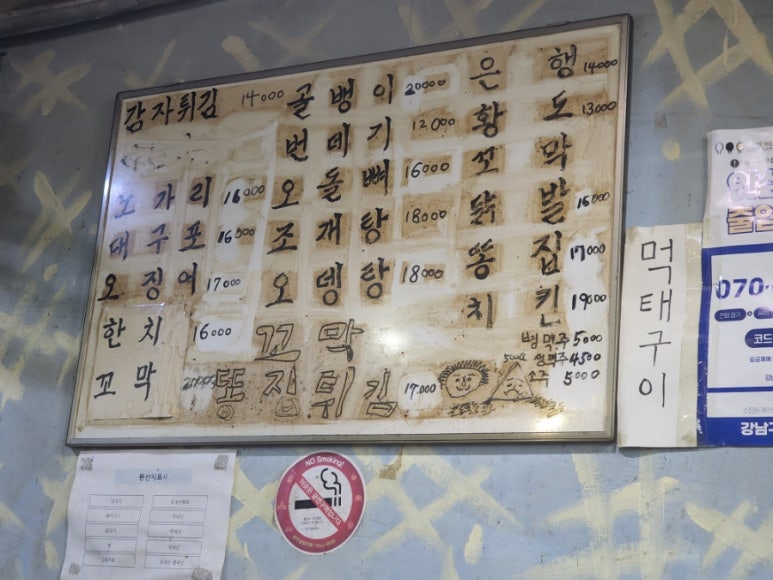 감자튀김 14000
노가리 16000
대구포 16000
오징어 17000
한치 16000
꼬막
골뱅이 20000
번데기 12000
오돌뼈 16000
조개탕 18000
오뎅탕 18000
꼬막
똥집튀김 17,000
은행 14000
황도 13000
꼬막
닭발 16000
똥집 17000
치킨 19000
병맥주 5000
생맥주 4500
소주 5000
먹태구이
원산지표시
NO Smoking!
070-
코드
강남구